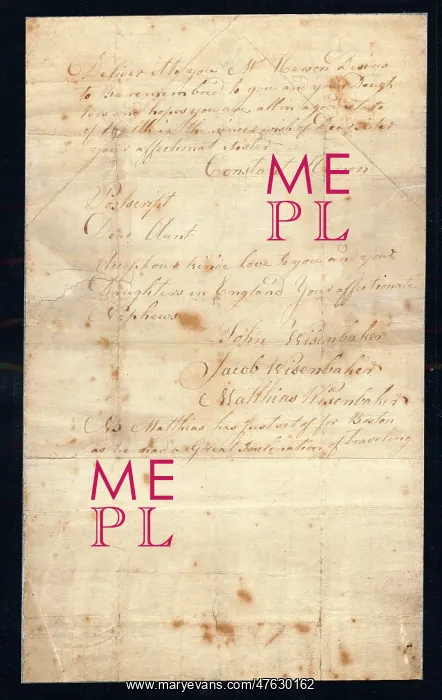 Deliver it to you Mr Herson desires
to be remembred to you and your Daugh
ters and hopes you are all in a good state
of health is the sincere wish of Dear Sister
your affectionat Sister
Constant
Postscript
Dear Aunt
Accept our kinde love to you and your
Daughters in England Your affectionate
Nephews
John Wisenbaker
Jacob Wisenbaker
Matthias Wisenbaker
NB Matthias has just set of for Boston
as he had a Great Inclination of Traveling
ME
PL
ME
PL
www.maryevans.com/47630162